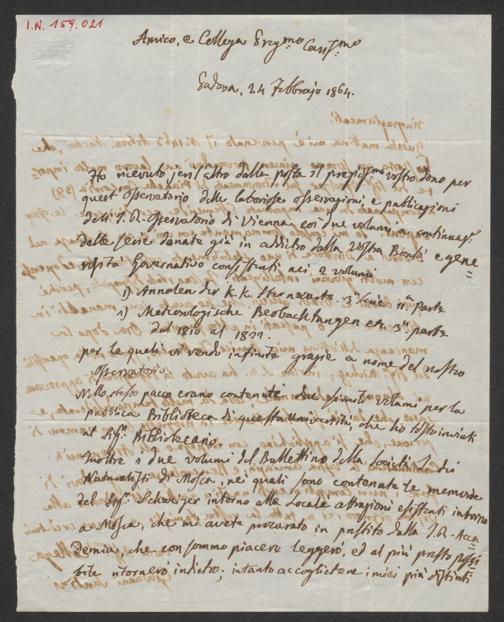 I.N. 159.021
Amico, e Collega Preg.mo Cariss.mo
Padova, 24 Febbrajo 1864.
Ho ricevuto jeri l'altro dalla posta il prezios.mo vostro dono per
quest'Osservatorio delle laboriose osservazioni, e pubblicazioni
dell'I.R. Osservatorio di Vienna, coi due volumi in continuaz.
delle serie donate già in addietro dalla vostra Bontà e gene=
rosità Governativa consistenti nei 2 volumi
1) Annalen der K.K. Sternwarte. 3a Serie 11a parte
2) Meteorologische Beobachtungen etc. 3a parte
dal 1810 al 1822.
per le quali vi rendo infinite grazie a nome del nostro
Osservatorio.
Nello stesso pacco erano contenuti due volumi per la
pubblica Biblioteca di questa Università, che ho
al Sig. Bibliotecario.
Inoltre i due volumi del Bullettino della Società I. dei
Naturalisti di Mosca, nei quali sono contenute le memorie
del Sig. Schweizer intorno alle locale attrazioni esistenti intorno
a Mosca, che mi avete procurato in prestito dalla I.R. Acca
demia, che con sommo piacere leggerò, ed al più presto possi
bile ritornerò indietro; intanto accoglietene i miei più distinti